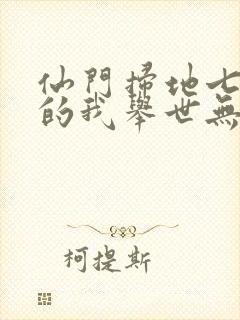 仙門掃地七
的我舉世無
柯提斯